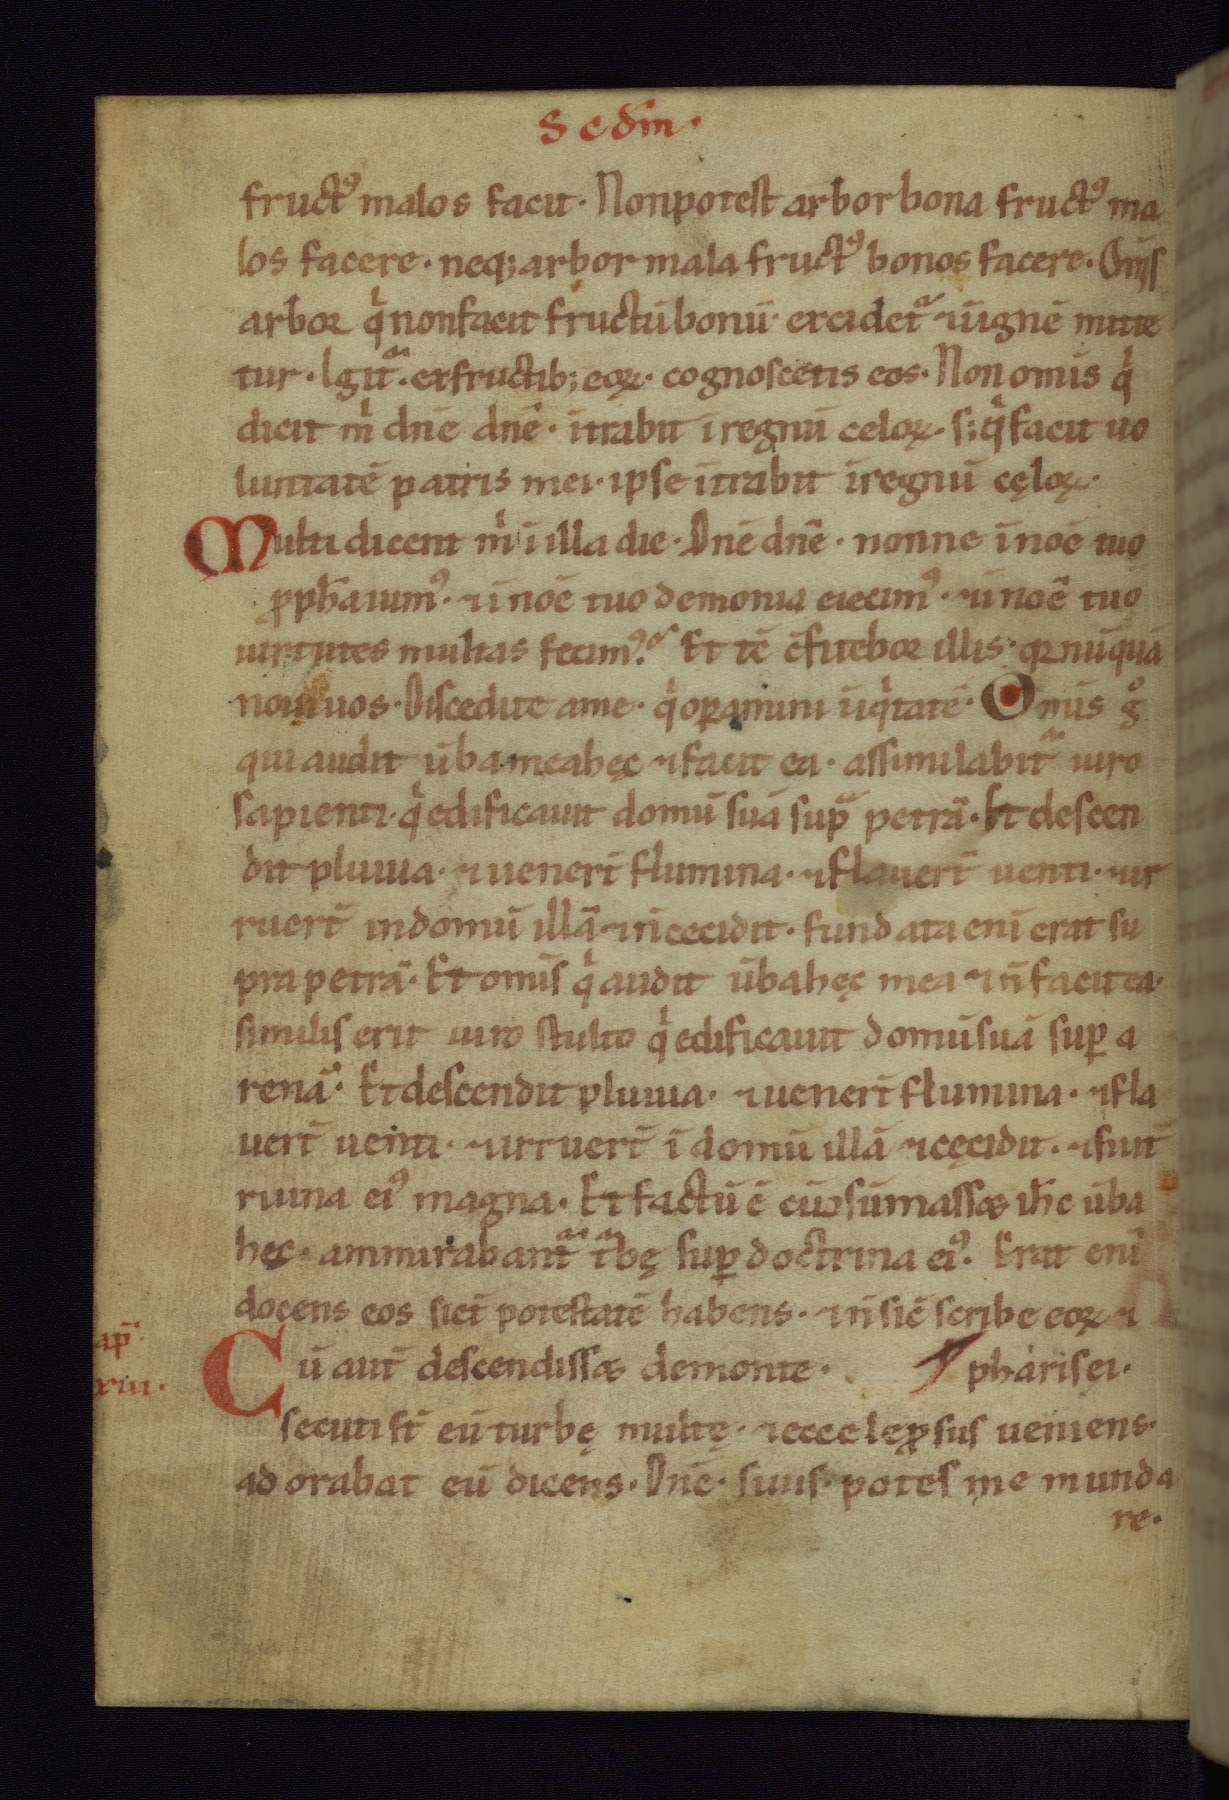 Scd̄m·
fruct᷒ malos facit· Non potest arbor bona fruct᷒ ma
los facere· neq; arbor mala fruct᷒ bonos facere· Om̄is
arbor qͥ non facit fructū bonū· excidet᷑ ⁊ ī ignē mitte
tur· Igit᷑· ex fructib; eoꝝ· cognoscetis eos· Non om̄is qͥ
dicit mͥ dn̄e dn̄e· ītrabit ī regnū celoꝝ· s; qͥ facit uo
luntatē patris mei· ipse ītrabit ī regnū cęloꝝ·
Multi dicent mͥ ī illa die· Dn̄e dn̄e· nonne ī noē tuo
ꝓph̄auim᷒· ⁊ ī noē tuo demonia eiecim᷒· ⁊ ī noē tuo
uirtutes multas fecim᷒? Et tc̄ c̄fitebor illis· qꝛ nūquā
noui uos· Discedite a me· qͥ oꝑamini īiqͥtatē· Om̄is gͦ
qui audit ūba mea hęc ⁊ facit ea· assimilabit᷑ uiro
sapienti· qͥ edificauit domū suā supᷓ petrā· Et descen
dit pluuia· ⁊ uenert̄ flumina· ⁊ flauert̄ uenti· ⁊ ir
ruert̄ in domū illā ⁊ n̄ cecidit· fundata eni erat su
pra petrā· Et om̄is qͥ audit ūba hęc mea ⁊ n̄ facit ea·
similis erit uiro stulto qͥ edificauit domū suā suꝑ a
renā· Et descendit pluuia· ⁊ uenert̄ flumina· ⁊ fla
uert̄ uenti· ⁊ irruert̄ ī domū illā ⁊ cęcidit· ⁊ fuit
ruina ei᷒ magna· Et factū ē cū ɔsūmasset ih̄c ūba
hęc· ammirabant᷑ t᷑bę suꝑ doctrina ei᷒· Erat eni
docens eos sict̄ potestatē habens· ⁊ n̄ sic̄ scribe eoꝝ ⁊
ap̄·
xiii·
Cū aut̄ descendisset de monte· pharisei·
secuti st̄ eū turbę multę· ⁊ ecce leꝓsus ueniens·
adorabat eū dicens· Dn̄e· si uis· potes me munda
re·